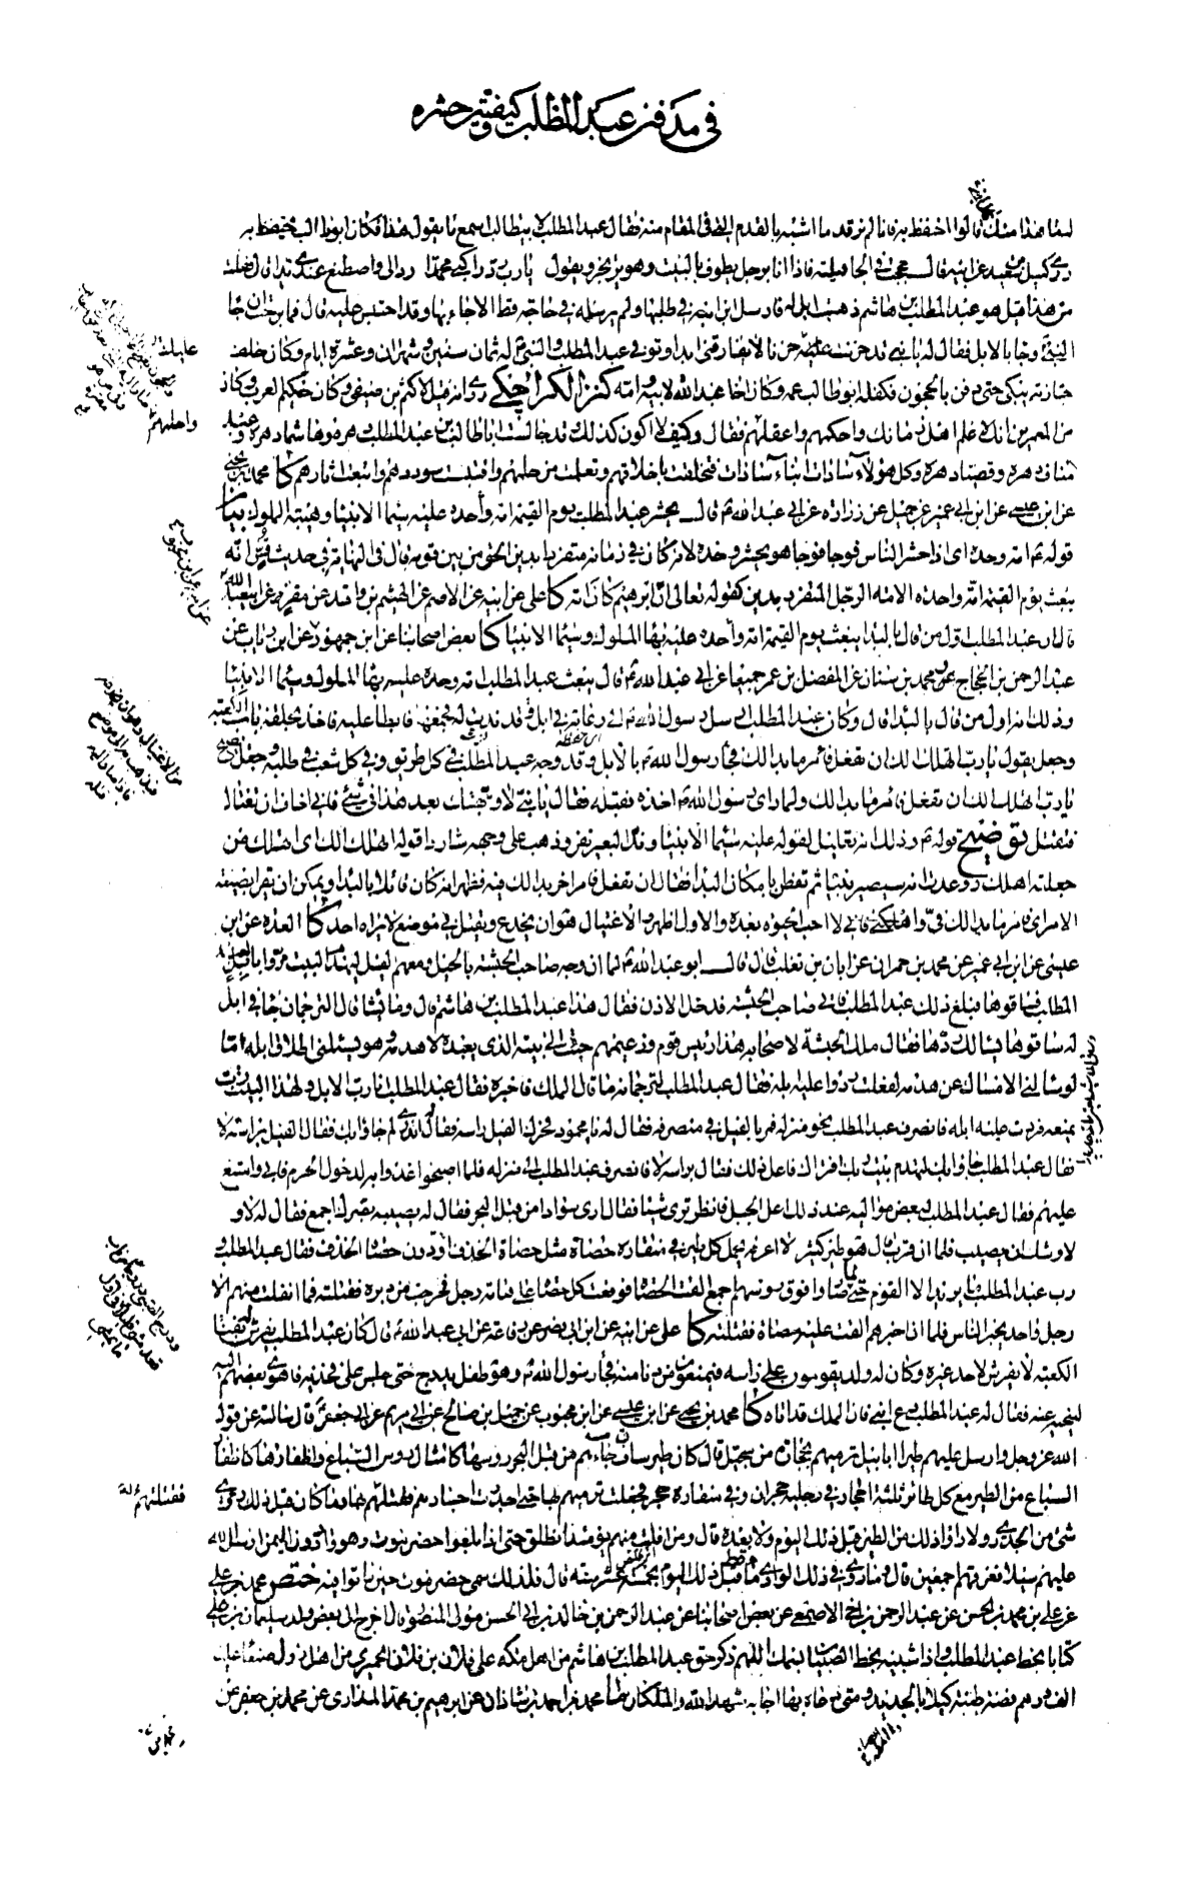 في مدفن عبد المطلب وكيفية حشره
لسنا هذا منك قالوا احتفظ به فانا لم نر قدما اشبه بالقدم التي في المقام منه فقال عبد المطلب لابي طالب اسمع ما يقول هؤلاء فكان ابو طالب يحتفظ به
عن ابيه قال حججت في الجاهلية فاذا انا برجل يطوف بالبيت وهو يرتجز ويقول يا رب رد راكبي محمدا رد الي واصطنع عندي يدا قال قلت
من هذا قيل هو عبد المطلب بن هاشم ذهبت ابل له فارسل ابن ابنه في طلبها ولم يرسله في حاجة قط الا جاء بها وقد احتبس عليه قال فما برحت ان جاء
النبي وجاء بالابل فقال له يا بني قد حزنت عليك حزنا لا يفارقني ابدا وتوفي عبد المطلب والنبي له ثمان سنين وشهران وعشرة ايام وكان خلف
جنازته يبكي حتى دفن بالحجون فكفله ابو طالب عمه وكان اخا عبد الله لابيه وامه كنز الكراجكي روي انه قيل لاكثم بن صيفي وكان حكيم العرب وكان
من المعمرين انك لاعلم اهل زمانك واحكمهم واعقلهم فقال وكيف لا اكون كذلك وقد جالست ابا طالب بن عبد المطلب دهره وهاشما دهره وعبد
مناف دهره وقصيا دهره وكل هؤلاء سادات ابناء سادات فتخلقت باخلاقهم وتعلمت من حلمهم واقتبست سوددهم واتبعت اثارهم كا محمد بن يحيى
عن ابن عيسى عن ابن ابي عمير عن جميل عن زرارة عن ابي عبد الله قال يحشر عبد المطلب يوم القيمة امة واحدة عليه سيماء الانبياء وهيبة الملوك بيان
قوله امة واحدة اي اذا حشر الناس فوجا فوجا هو يحشر وحده لانه كان في زمانه متفردا بدين الحق من بين قومه قال في النهاية في حديث قس انه
يبعث يوم القيمة امة واحدة الامة الرجل المتفرد بدين كقوله تعالى ان ابرهيم كان امة كا علي عن ابيه عن الاصم عن الهيثم بن واقد عن مقرن عن ابي عبد الله
قال ان عبد المطلب اول من قال بالبدا يبعث يوم القيمة امة واحدة عليه بهاء الملوك وسيماء الانبياء كا بعض اصحابنا عن ابن جمهور عن ابن رئاب عن
عبد الرحمن بن الحجاج عن محمد بن سنان عن المفضل بن عمر جميعا عن ابي عبد الله قال يبعث عبد المطلب امة وحده عليه بهاء الملوك وسيماء الانبياء
وذلك انه اول من قال بالبداء قال وكان عبد المطلب ارسل رسول الله الى رعاته في ابل قد ندت له يجمعها فابطأ عليه فاخذ بحلقة باب الكعبة
وجعل يقول يا رب اتهلك الك ان تفعل فامر ما بدا لك فجاء رسول الله بالابل وقد وجه عبد المطلب في كل طريق وفي كل شعب في طلبه وجعل يصيح
يا رب اتهلك الك ان تفعل فامر ما بدا لك ولما راى رسول الله اخذه فقبله فقال يا بني لا وجهتك بعد هذا في شيء فاني اخاف ان تغتال
فتقتل توضيح قوله وذلك انه تعليل لقوله عليه سيماء الانبياء وند البعير نفر وذهب على وجهه شاردا قوله اتهلك الك اي اتهلك من
جعلته اهلك ووعدت انه سيصير نبيا ثم تفطن بامكان البداء فقال ان تفعل فامر اخر بدا لك فيه فظهر انه كان قائلا بالبداء ويمكن ان يقرا بصيغة
الامر اي فامر ما بدا لك في واهلكني فاني لا احب الحيوة بعده والاول اظهر والاغتيال هو ان يخدع ويقتل في موضع لا يراه احد كا العدة عن ابن
عيسى عن ابن ابي عمير عن محمد بن حمران عن ابان بن تغلب قال قال ابو عبد الله لما ان وجه صاحب الحبشة بالخيل ومعهم الفيل ليهدم البيت مروا بابل لعبد
المطلب فساقوها فبلغ ذلك عبد المطلب فاتى صاحب الحبشة فدخل الاذن فقال هذا عبد المطلب بن هاشم قال وما يشاء قال الترجمان جاء في ابل
له ساقوها يسالك ردها فقال ملك الحبشة لاصحابه هذا رئيس قوم وزعيمهم جئت الى بيته الذي يعبده لاهدمه وهو يسئلني اطلاق ابله اما
لو سالني الامساك عن هدمه لفعلت ردوا عليه ابله فقال عبد المطلب لترجمانه ما قال الملك فاخبره فقال عبد المطلب انا رب الابل ولهذا البيت رب
يمنعه فردت عليه ابله فانصرف عبد المطلب نحو منزله فمر بالفيل في منصرفه فقال له يا محمود فحرك الفيل راسه فقال له اتدري لم جاؤا بك فقال الفيل براسه لا
فقال عبد المطلب جاؤا بك لتهدم بيت ربك افتراك فاعل ذلك فقال براسه لا فانصرف عبد المطلب الى منزله فلما اصبحوا غدوا به لدخول الحرم فابى وامتنع
عليهم فقال عبد المطلب لبعض مواليه عند ذلك اعل الجبل فانظر ترى شيئا فقال ارى سوادا من قبل البحر فقال له يصيبه بصرك اجمع فقال له لا و
لاوشك ان يصيب فلما ان قرب قال هو طير كثير لا اعرفه يحمل كل طير في منقاره حصاة مثل حصاة الخذف او دون حصاة الخذف فقال عبد المطلب و
رب عبد المطلب ما يريد الا القوم حتى لما صاروا فوق رؤسهم اجمع القت الحصاة فوقعت كل حصاة على هامة رجل فخرجت من دبره فقتلته فما انفلت منهم الا
رجل واحد يخبر الناس فلما ان اخبرهم القت عليه حصاة فقتلته كا علي عن ابيه عن ابن ابي نصر عن رفاعة عن ابي عبد الله قال كان عبد المطلب يفرش له بفناء
الكعبة لا يفرش لاحد غيره وكان له ولد يقومون على راسه فيمنعون من دنا منه فجاء رسول الله وهو طفل يدرج حتى جلس على فخذيه فاهوى بعضهم اليه
لينحيه عنه فقال له عبد المطلب دع ابني فان الملك قد اتاه كا محمد بن يحيى عن ابن عيسى عن ابن محبوب عن جميل بن صالح عن ابي مريم عن ابي جعفر قال سالته عن قول
الله عز وجل وارسل عليهم طيرا ابابيل ترميهم بحجارة من سجيل قال كان طير ساف جاءهم من قبل البحر رؤسها كامثال رؤس السباع واظفارها كاظفار
السباع من الطير مع كل طائر ثلثة احجار في رجليه حجران وفي منقاره حجر فجعلت ترميهم بها حتى جدرت اجسادهم فقتلهم بها وما كان قبل ذلك رؤي
شيء من الجدري ولا راوا ذلك من الطير قبل ذلك اليوم ولا بعده قال ومن افلت منهم يومئذ انطلق حتى اذا بلغوا حضرموت وهو واد دون اليمن ارسل الله
عليهم سيلا فغرقهم اجمعين قال وما رؤي في ذلك الوادي ماء قط قبل ذلك اليوم بخمس عشرة سنة قال فلذلك سمي حضرموت حين ماتوا فيه ختص محمد بن علي
عن علي بن محمد بن الحسن عن عبد الرحمن بن اخي الاصمعي عن بعض اصحابنا عن عبد الرحمن بن خالد بن ابي الحسن مولى المنصور قال اخرج الي بعض ولد سليمان بن علي
كتابا بخط عبد المطلب واذا شبيه بخط الصبيان بسمك اللهم ذكر حق عبد المطلب بن هاشم من اهل مكة على فلان بن فلان الحميري من اهل زول صنعاء عليه
الف درهم فضة طيبة كيلا بالحديد ومتى دعاه بها اجابه شهد الله والملكان ما محمد بن احمد بن شاذان عن ابرهيم بن محمد المذاري عن محمد بن جعفر عن
واحلمهم
فقتلتهم